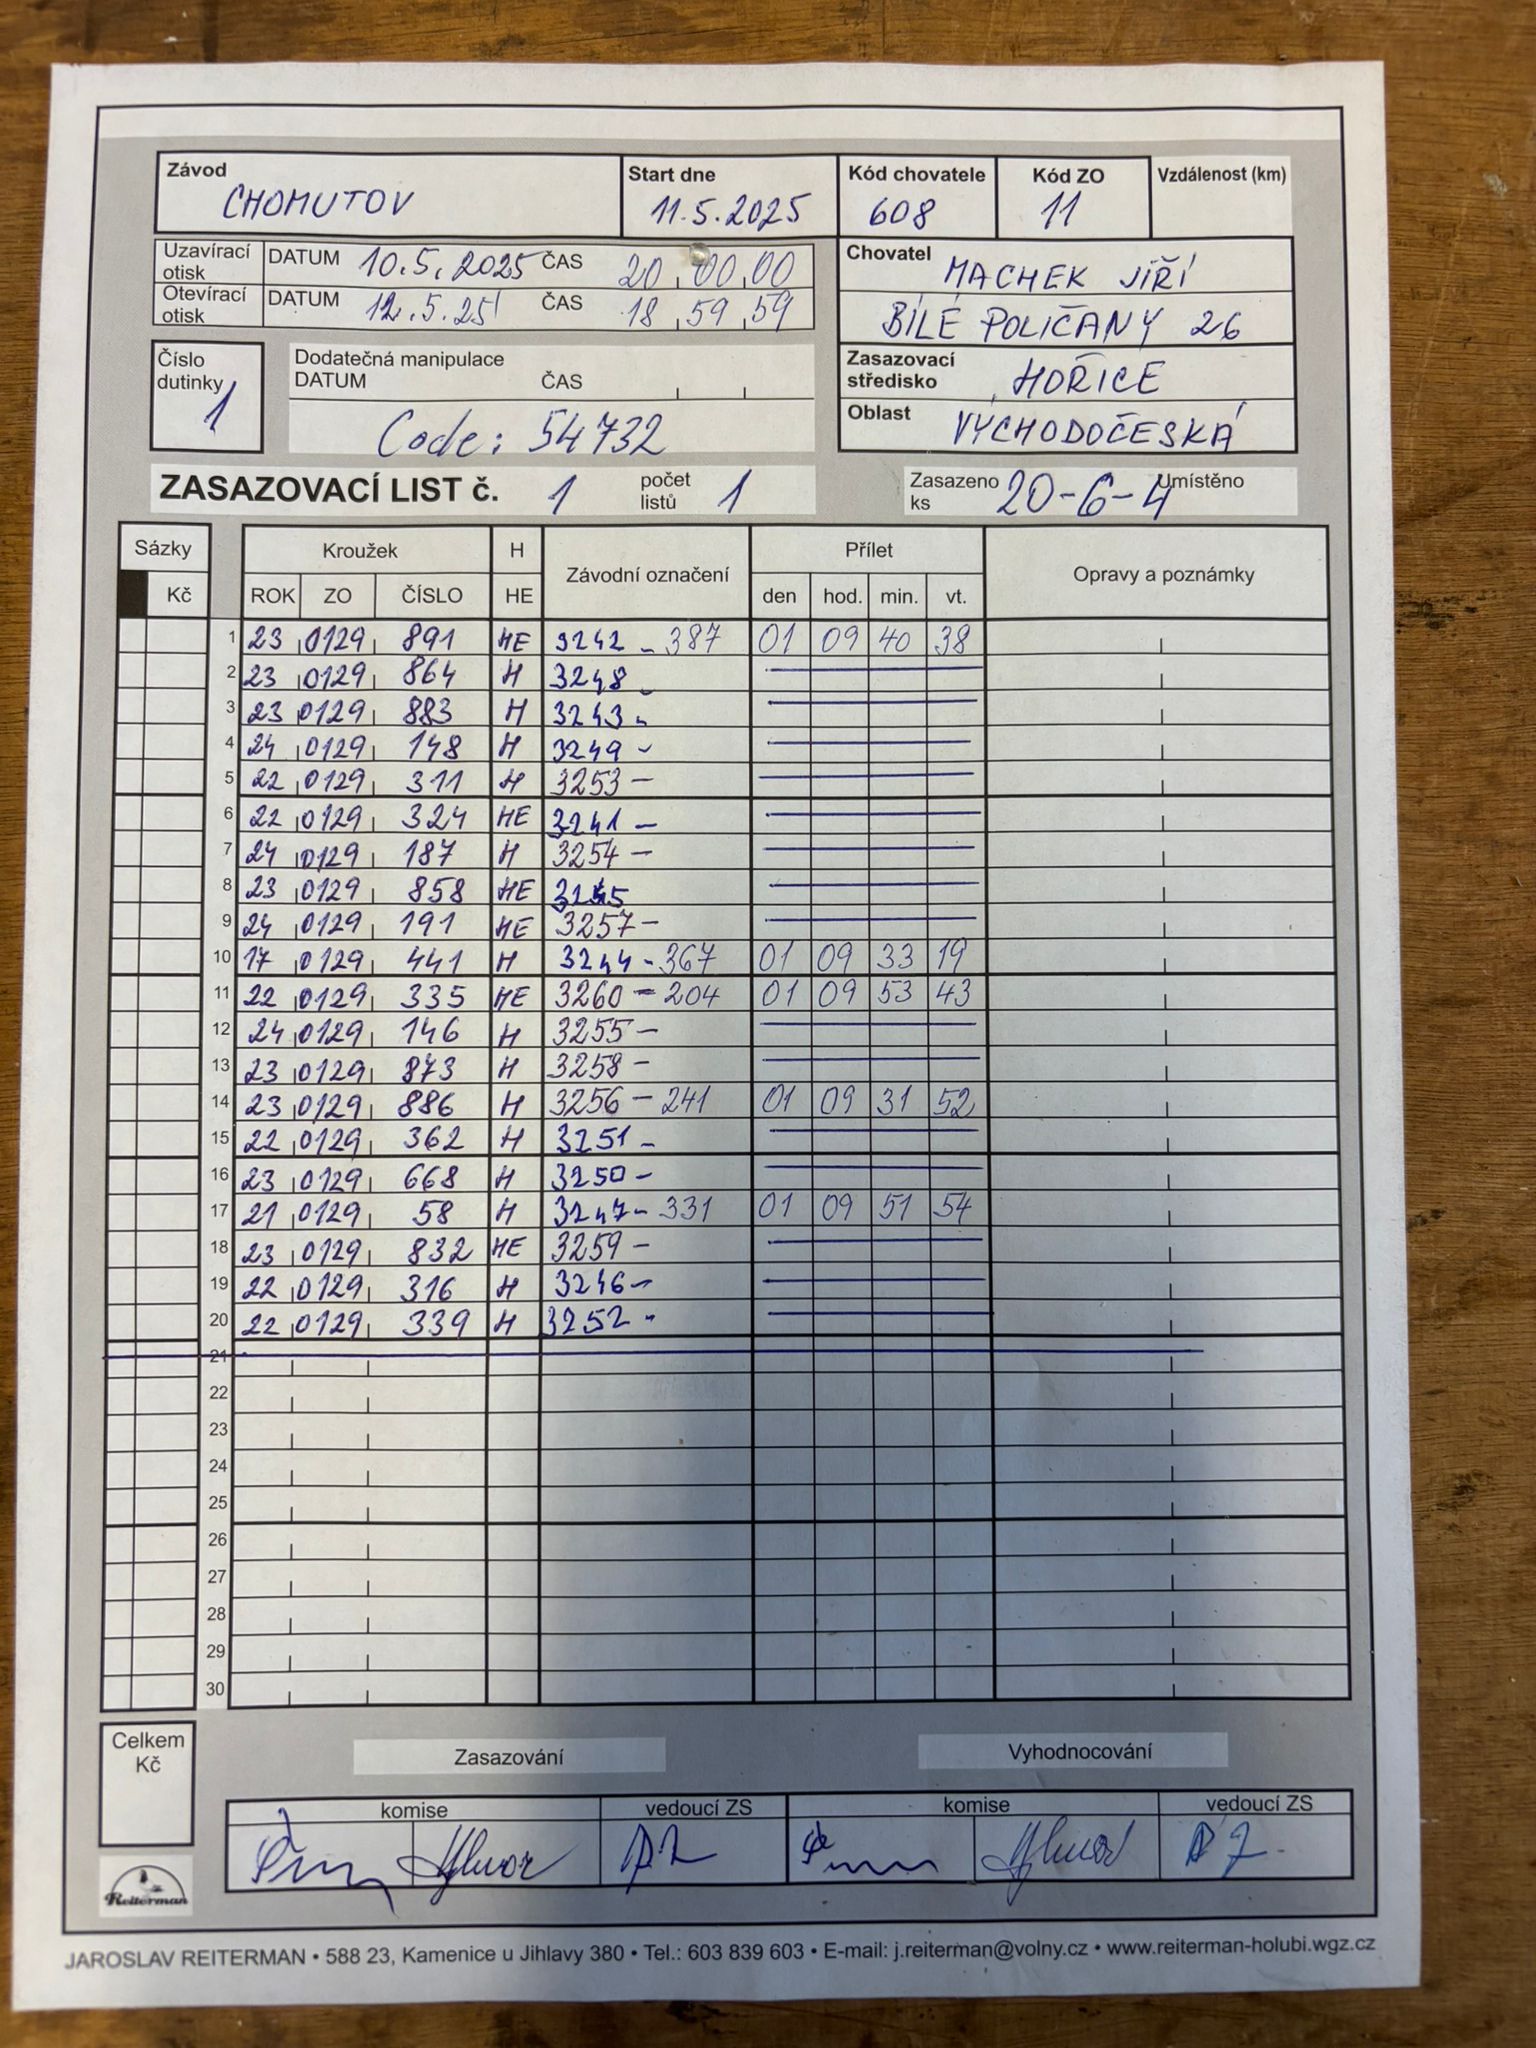 Závod Start dne Kód chovatele Kód ZO Vzdálenost (km)
CHOMUTOV 11.5.2025 608 11
Uzavírací otisk DATUM 10.5.2025 ČAS 20 00 00
Otevírací otisk DATUM 12.5.25 ČAS 18 59 59
Chovatel MACHEK JIŘÍ
BÍLÉ POLIČANY 26
Číslo dutinky 1
Dodatečná manipulace
DATUM ČAS
Code: 54732
Zasazovací středisko HOŘICE
Oblast VÝCHODOČESKÁ
ZASAZOVACÍ LIST č. 1 počet listů 1 Zasazeno ks 20-6-4 Umístěno
Sázky Kroužek H Závodní označení Přílet Opravy a poznámky
Kč ROK ZO ČÍSLO HE den hod. min. vt.
1 23 0129 891 HE 3242 - 387 01 09 40 38
2 23 0129 864 H 3248 -
3 23 0129 883 H 3243 -
4 24 0129 148 H 3249 -
5 22 0129 311 H 3253 -
6 22 0129 324 HE 3241 -
7 24 0129 187 H 3254 -
8 23 0129 858 HE 3245
9 24 0129 191 HE 3257 -
10 17 0129 441 H 3244 - 367 01 09 33 19
11 22 0129 335 HE 3260 - 204 01 09 53 43
12 24 0129 146 H 3255 -
13 23 0129 873 H 3258 -
14 23 0129 886 H 3256 - 241 01 09 31 52
15 22 0129 362 H 3251 -
16 23 0129 668 H 3250 -
17 21 0129 58 H 3247 - 331 01 09 51 54
18 23 0129 832 HE 3259 -
19 22 0129 316 H 3246 -
20 22 0129 339 H 3252 -
21
22
23
24
25
26
27
28
29
30
Celkem Kč
Zasazování Vyhodnocování
komise vedoucí ZS komise vedoucí ZS
Reiterman
JAROSLAV REITERMAN • 588 23, Kamenice u Jihlavy 380 • Tel.: 603 839 603 • E-mail: j.reiterman@volny.cz • www.reiterman-holubi.wgz.cz